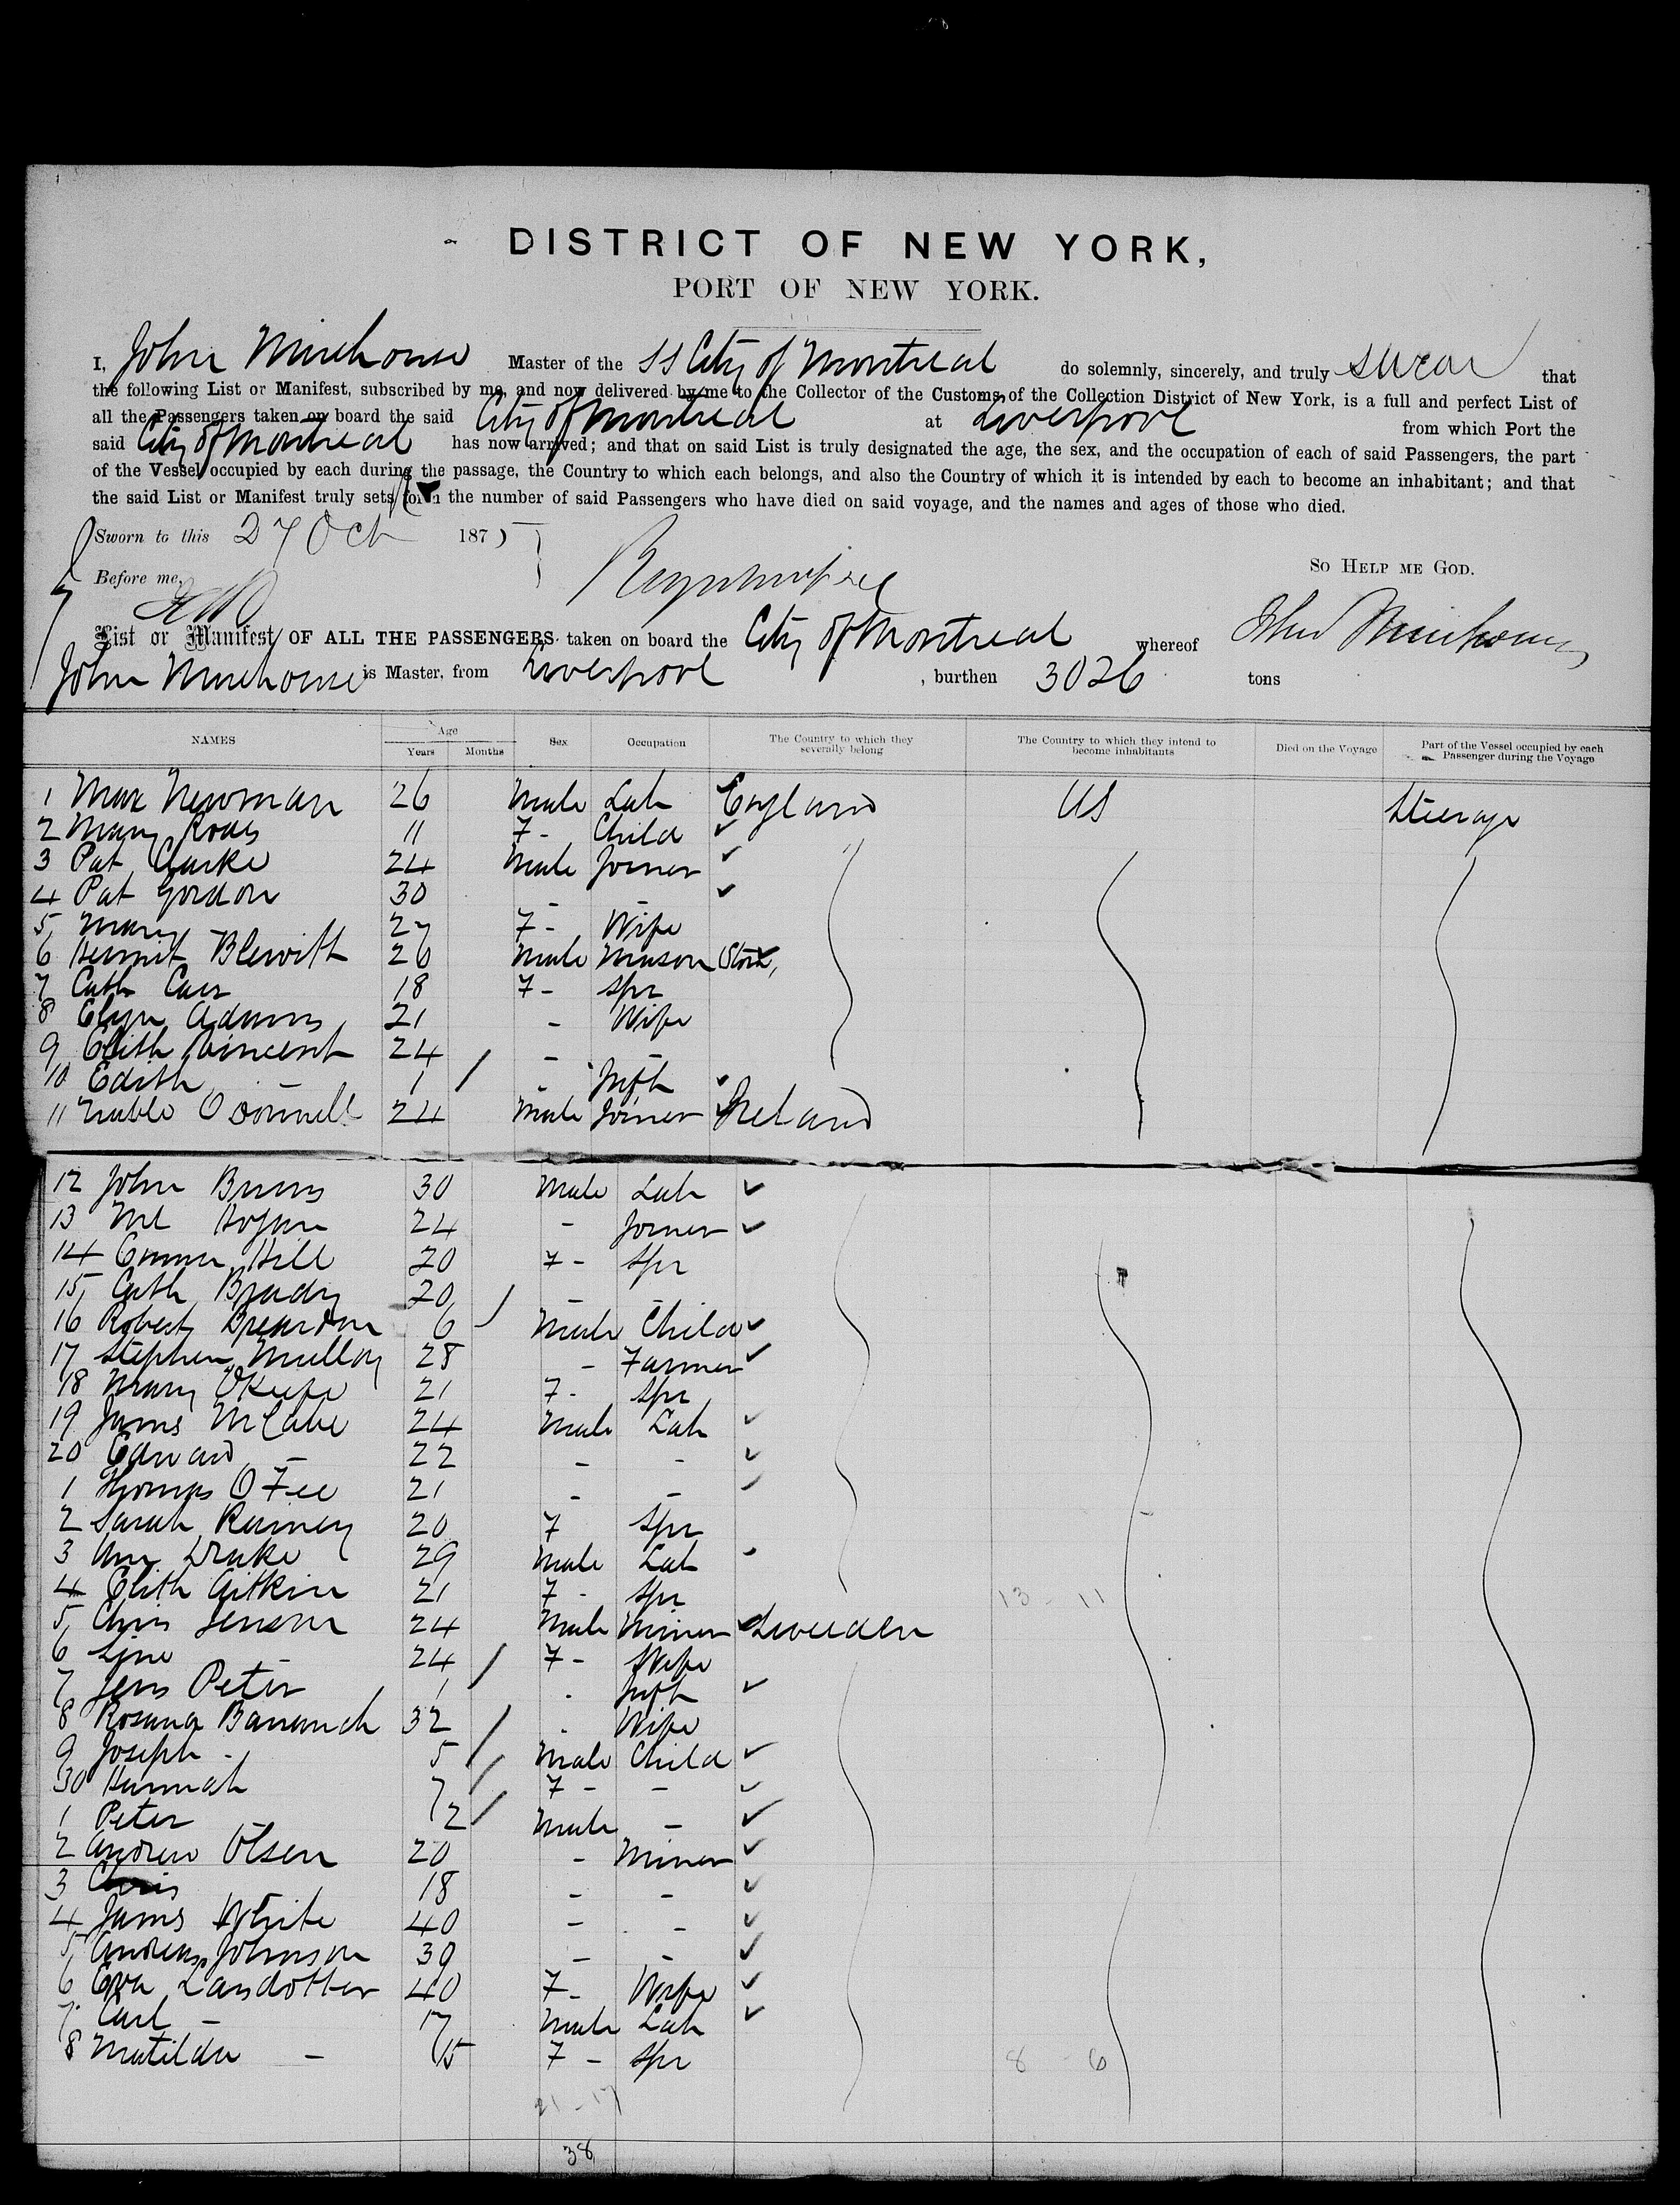 DISTRICT OF NEW YORK,
PORT OF NEW YORK.
I, John Mirehouse Master of the SS City of Montreal do solemnly, sincerely, and truly swear that
the following List or Manifest, subscribed by me, and now delivered by me to the Collector of the Customs of the Collection District of New York, is a full and perfect List of
all the Passengers taken on board the said City of Montreal at Liverpool from which Port the
said City of Montreal has now arrived; and that on said List is truly designated the age, the sex, and the occupation of each of said Passengers, the part
of the Vessel occupied by each during the passage, the Country to which each belongs, and also the Country of which it is intended by each to become an inhabitant; and that
the said List or Manifest truly sets forth the number of said Passengers who have died on said voyage, and the names and ages of those who died.
Sworn to this 27 Oct 1875
So Help me God.
Before me,
List or Manifest OF ALL THE PASSENGERS taken on board the City of Montreal whereof John Mirehouse
John Mirehouse is Master, from Liverpool, burthen 3026 tons
NAMES Age Years Months Sex Occupation The Country to which they severally belong The Country to which they intend to become inhabitants Died on the Voyage Part of the Vessel occupied by each Passenger during the Voyage
1 Max Newman 26 Male Lab England US Steerage
2 Mary 11 F - Child
3 Pat Clarke 24 Male Joiner
4 Pat Gordon 30 - -
5 Mary 27 F - Wife
6 Blewitt 26 Male Mason
7 Cath Carr 18 F - Spr
8 Adams 21 - Wife
9 Elith Vincent 24 - -
10 Edith - 1 - Inft
11 O Donnell 24 Male Joiner Ireland
12 John Burns 30 Male Lab
13 Ml Hogan 24 - Joiner
14 Emma Hill 20 F - Spr
15 Cath Brady 20 - -
16 Robert 6 Male Child
17 Stephen Mulloy 28 - Farmer
18 Mary O'Keefe 21 F - Spr
19 James McCabe 24 Male Lab
20 Edward - 22 - -
1 Thomas O Fee 21 - -
2 Sarah Ramey 20 F Spr
3 Drake 29 Male Lab
4 Elith Aitkin 21 F - Spr
5 Chris Jenson 24 Male Miner Sweeden
6 Line - 24 F - Wife
7 Jens Peter 1 - Inft
8 Rosana 32 - Wife
9 Joseph - 5 Male Child
30 Hannah 7 F - -
1 Peter 2 Male -
2 Andrew Olsen 20 - Miner
3 Chris 18 - -
4 James White 40 - -
5 Andreas Johnson 39 - -
6 Eva Larsdotter 40 F - Wife
7 Carl - 17 Male Lab
8 Matilda - 15 F - Spr
13 - 11
8 - 6
21 - 17
38